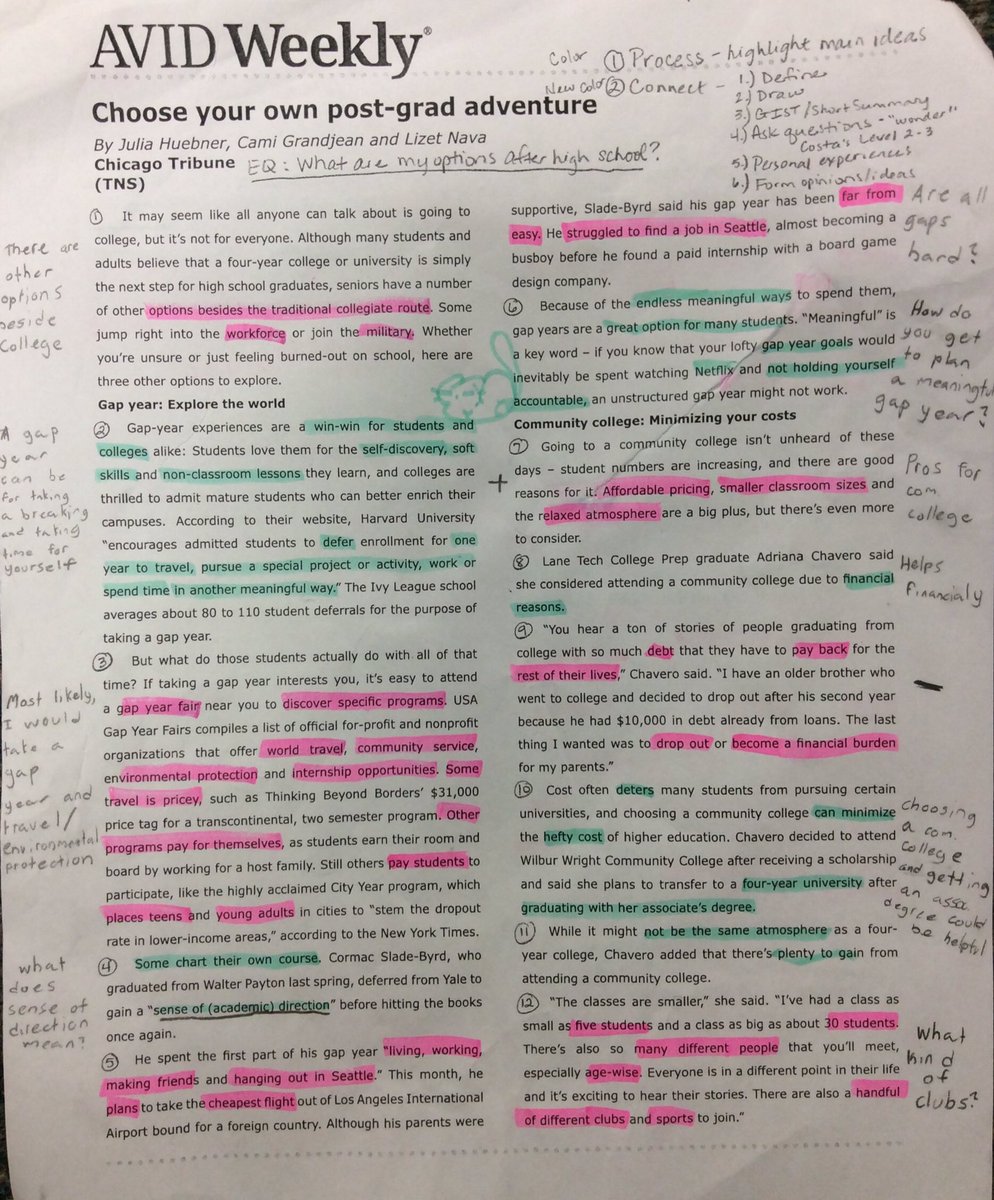 AVID Weekly®
Color ① Process - highlight main ideas
New Color ② Connect -
1.) Define
2.) Draw
3.) GIST/Short Summary
4.) Ask questions - "wonder"
Costa's Level 2-3
5.) Personal experiences
6.) Form opinions/ideas
Choose your own post-grad adventure
By Julia Huebner, Cami Grandjean and Lizet Nava
Chicago Tribune
(TNS)
EQ: What are my options after high school?
① It may seem like all anyone can talk about is going to
college, but it's not for everyone. Although many students and
adults believe that a four-year college or university is simply
the next step for high school graduates, seniors have a number
of other options besides the traditional collegiate route. Some
jump right into the workforce or join the military. Whether
you're unsure or just feeling burned-out on school, here are
three other options to explore.
There are
other
options
beside
College
Gap year: Explore the world
② Gap-year experiences are a win-win for students and
colleges alike: Students love them for the self-discovery, soft
skills and non-classroom lessons they learn, and colleges are
thrilled to admit mature students who can better enrich their
campuses. According to their website, Harvard University
"encourages admitted students to defer enrollment for one
year to travel, pursue a special project or activity, work or
spend time in another meaningful way." The Ivy League school
averages about 80 to 110 student deferrals for the purpose of
taking a gap year.
A gap
year
can be
for taking
a breaking
and taking
time for
yourself
③ But what do those students actually do with all of that
time? If taking a gap year interests you, it's easy to attend
a gap year fair near you to discover specific programs. USA
Gap Year Fairs compiles a list of official for-profit and nonprofit
organizations that offer world travel, community service,
environmental protection and internship opportunities. Some
travel is pricey, such as Thinking Beyond Borders' $31,000
price tag for a transcontinental, two semester program. Other
programs pay for themselves, as students earn their room and
board by working for a host family. Still others pay students to
participate, like the highly acclaimed City Year program, which
places teens and young adults in cities to "stem the dropout
rate in lower-income areas," according to the New York Times.
Most likely,
I would
take a
gap
year and
travel/
environmental
protection
④ Some chart their own course. Cormac Slade-Byrd, who
graduated from Walter Payton last spring, deferred from Yale to
gain a "sense of (academic) direction" before hitting the books
once again.
what
does
sense of
direction
mean?
⑤ He spent the first part of his gap year "living, working,
making friends and hanging out in Seattle." This month, he
plans to take the cheapest flight out of Los Angeles International
Airport bound for a foreign country. Although his parents were
supportive, Slade-Byrd said his gap year has been far from
easy. He struggled to find a job in Seattle, almost becoming a
busboy before he found a paid internship with a board game
design company.
Are all
gaps
hard?
⑥ Because of the endless meaningful ways to spend them,
gap years are a great option for many students. "Meaningful" is
a key word – if you know that your lofty gap year goals would
inevitably be spent watching Netflix and not holding yourself
accountable, an unstructured gap year might not work.
How do
you get
to plan
a meaningful
gap year?
Community college: Minimizing your costs
⑦ Going to a community college isn't unheard of these
days – student numbers are increasing, and there are good
reasons for it. Affordable pricing, smaller classroom sizes and
the relaxed atmosphere are a big plus, but there's even more
to consider.
+
Pros for
com.
college
⑧ Lane Tech College Prep graduate Adriana Chavero said
she considered attending a community college due to financial
reasons.
Helps
financialy
⑨ "You hear a ton of stories of people graduating from
college with so much debt that they have to pay back for the
rest of their lives," Chavero said. "I have an older brother who
went to college and decided to drop out after his second year
because he had $10,000 in debt already from loans. The last
thing I wanted was to drop out or become a financial burden
for my parents."
⑩ Cost often deters many students from pursuing certain
universities, and choosing a community college can minimize
the hefty cost of higher education. Chavero decided to attend
Wilbur Wright Community College after receiving a scholarship
and said she plans to transfer to a four-year university after
graduating with her associate's degree.
choosing
a com.
college
and getting
an assa.
degree could
be helpful
⑪ While it might not be the same atmosphere as a four-
year college, Chavero added that there's plenty to gain from
attending a community college.
⑫ "The classes are smaller," she said. "I've had a class as
small as five students and a class as big as about 30 students.
There's also so many different people that you'll meet,
especially age-wise. Everyone is in a different point in their life
and it's exciting to hear their stories. There are also a handful
of different clubs and sports to join."
What
kind
of
clubs?